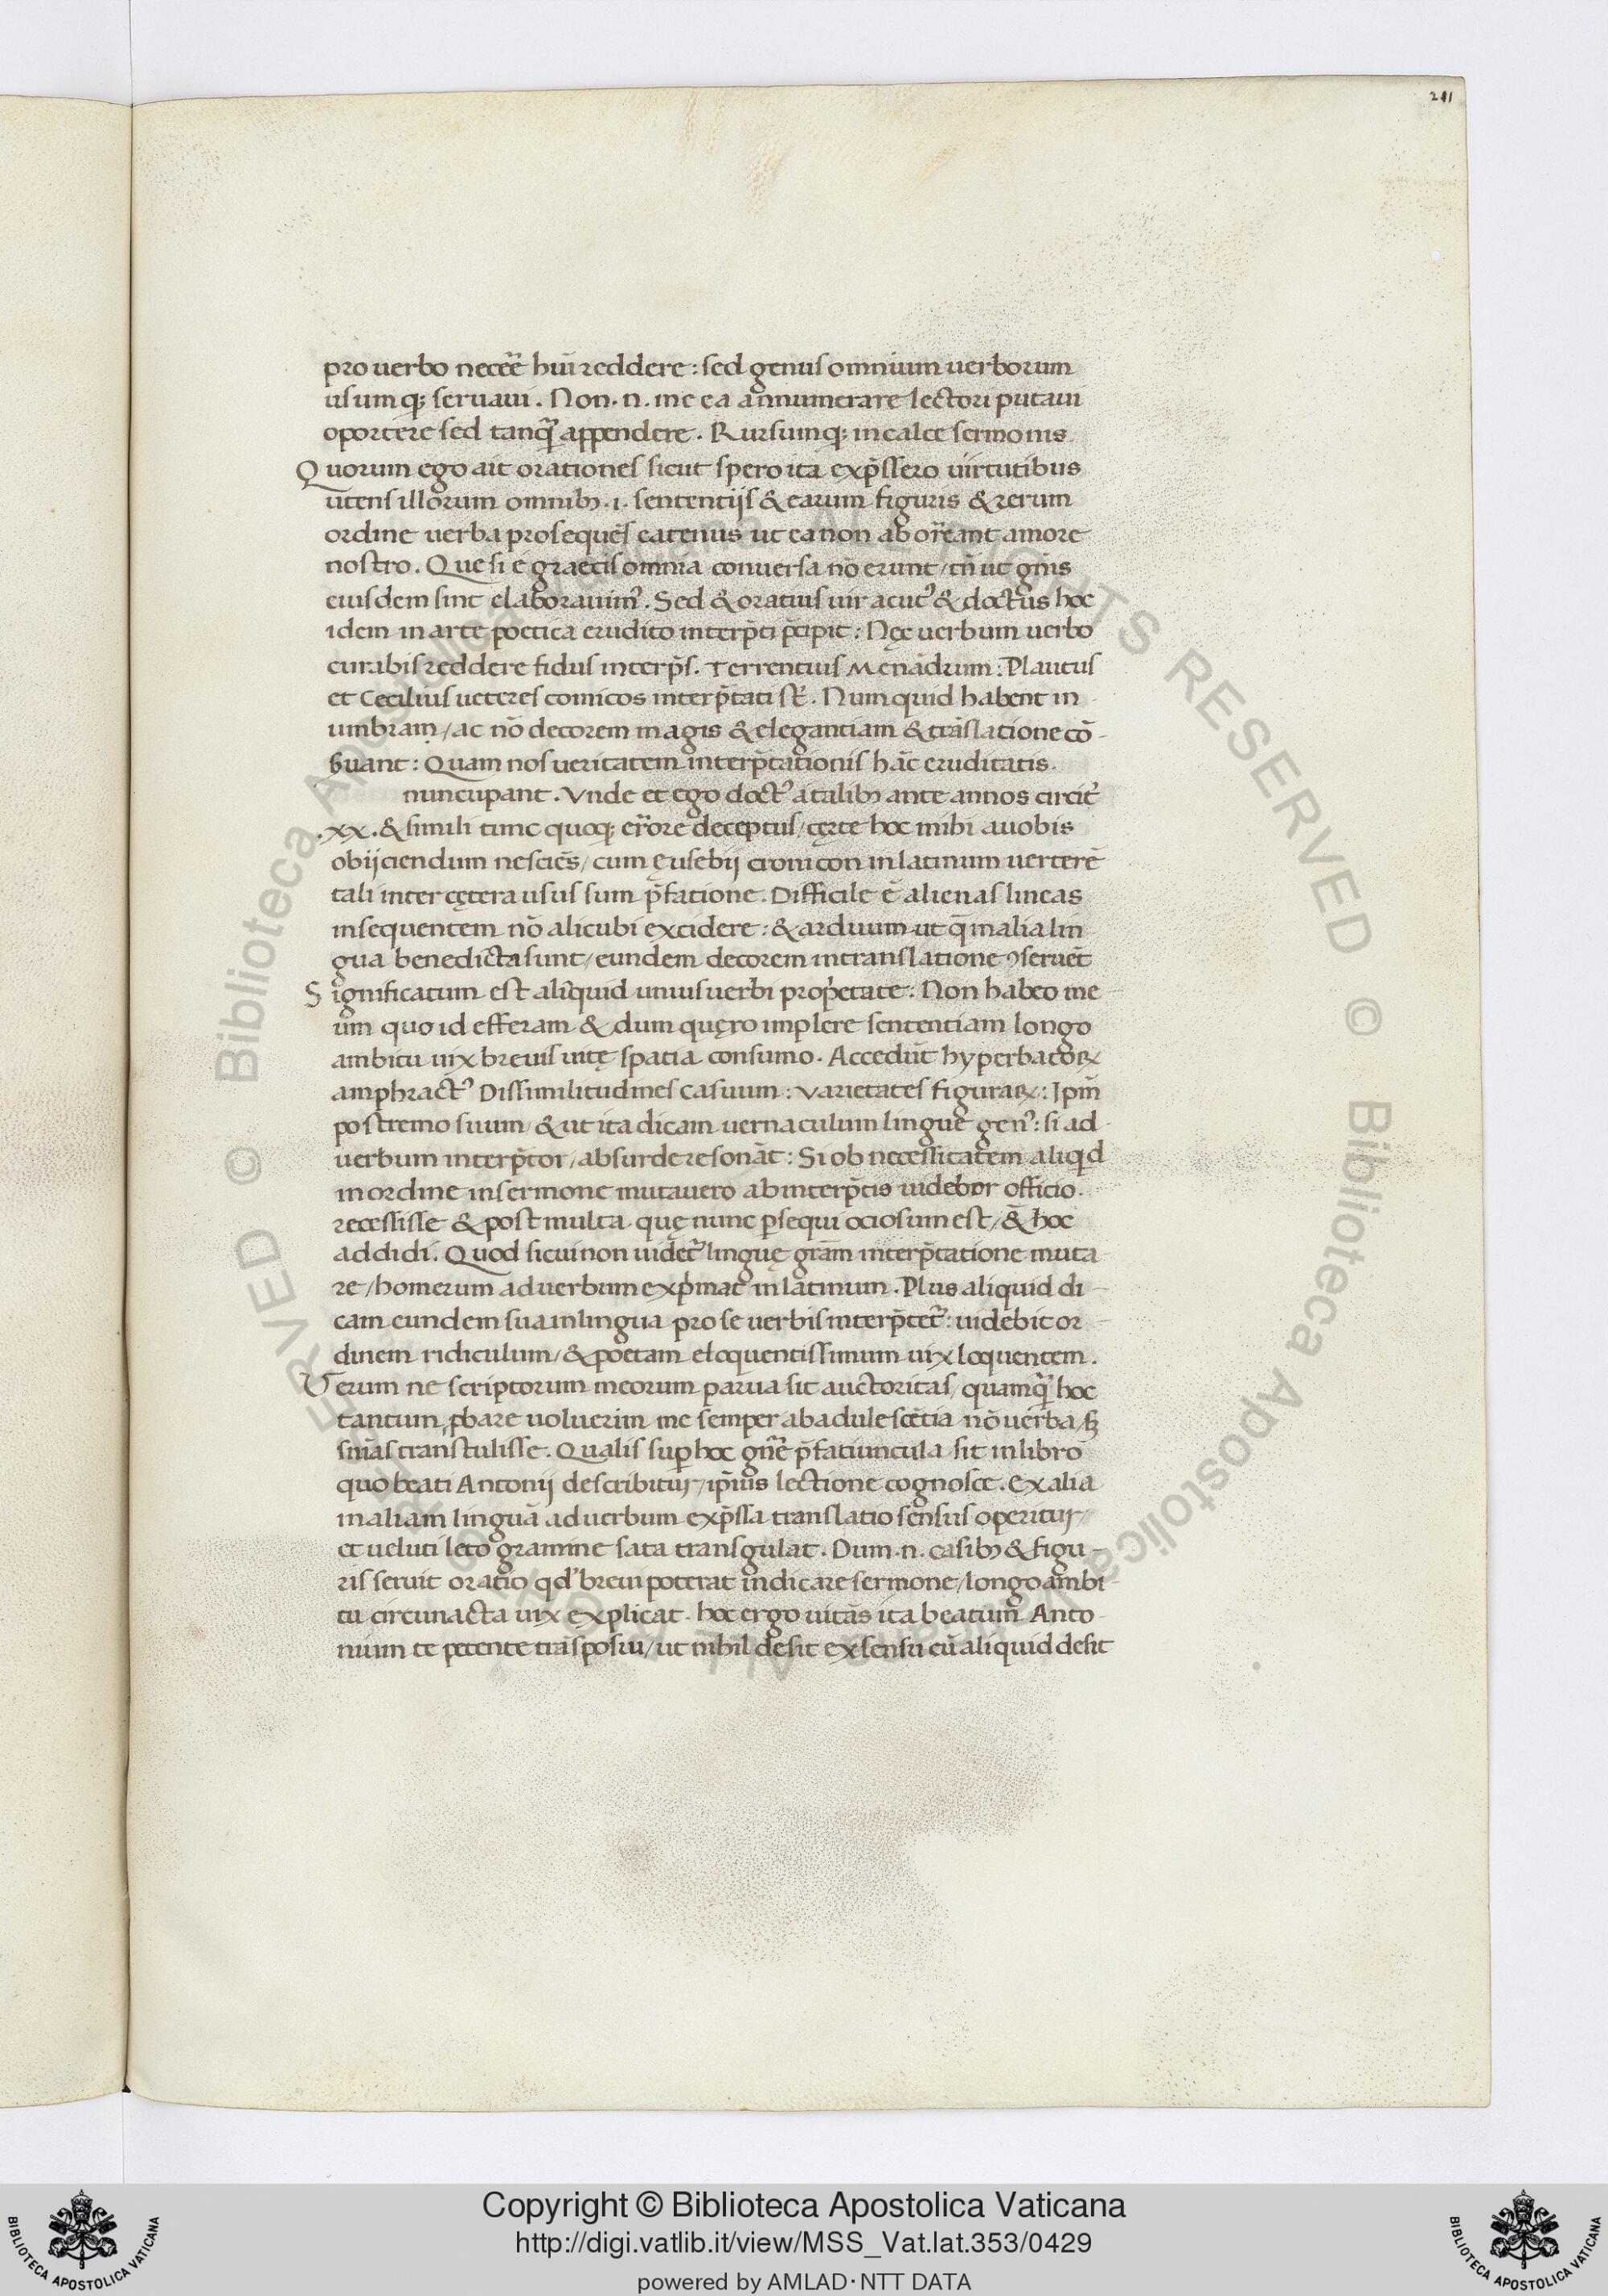 211
pro uerbo neceē̃ hūi reddere : sed genus omnium uerborum
usumq; seruaui . Non . n . me ea annumerare lectori putaui
oportere sed tanq̃ appendere . Rursumq; in calce sermonis
Quorum ego ait orationes sicut spero ita exp̃ssero uirtutibus
utens illorum omnibꝫ .i. sententijs & earum figuris & rerum
ordine uerba prosequēs eatenus ut ea non aborreant amore
nostro . Que si e graecis omnia conuersa nō erunt / tñ ut gñis
eiusdem sint elaborauimꝰ . Sed & oratius uir acutꝰ & doctus hoc
idem in arte poetica erudito interp̃ti p̃cipit : Nęc uerbum uerbo
curabis reddere fidus interp̃s . Terrentius Menādrum : Plautus
et Cecilius ueteres comicos interp̃tati st̃ . Numquid habent in
umbram / ac nō decorem magis & elegantiam & trāslatione cō-
ẜuant : Quam nos ueritatem interp̃tationis hāc eruditatis
nuncupant . Vnde et ego doctꝰ a talibꝫ ante annos circitꝰ
.xx. & simili tunc quoq; errore deceptus / cęrte hoc mihi a uobis
obijciendum nesciēs / cum ęusebij cronicon in latinum uerterē
tali inter cętera usus sum p̃fatione . Difficile ē alienas lineas
insequentem nō alicubi excidere : & arduum ut q̄ in alia lin
gua benedicta sunt / eundem decorem in translatione ꝯseruēt
Significatum est aliquid unius uerbi prop̃etate . Non habeo me-
um quo id efferam & dum quęro implere sententiam longo
ambitu uix breuis uitę spatia consumo . Accedūt hyperbatoꝝ
amphractꝰ Dissimilitudines casuum : varietates figuraꝝ : Ipm̃
postremo suum / & ut ita dicam uernaculum lingue genꝰ : si ad
uerbum interp̃tor / absurde resonāt : Si ob necessitatem aliqd
in ordine in sermone mutauero ab interp̃tis uidebor officio
recessisse & post multa quę nunc ꝑsequi ociosum est / & hoc
addidi . Quod si cui non uidetꝰ linguę grām interp̃tatione muta
re / homerum ad uerbum exp̃mat in latinum . Plus aliquid di-
cam eundem sua in lingua prose uerbis interp̃tetꝰ : uidebit or-
dinem ridiculum / & poetam eloquentissimum uix loquentem .
Verum ne scriptorum meorum parua sit auctoritas / quamq̃ hoc
tantum ꝓbare uoluerim me semper ab adulescētia nō uerba / sꝫ
snīas transtulisse . Qualis suꝑ hoc gñe p̃fatiuncula sit in libro
quo beati Antonij describitur / ip̃ius lectione cognosce . Ex alia
in aliam linguā ad uerbum exp̃ssa translatio sensus operitur /
et ueluti leto gramine sata transgulat . Dum .n. casibꝫ & figu-
ris seruit oratio qd' breui poterat indicare sermone / longo ambi-
tu circunacta uix explicat . hoc ergo uitās ita beatum Anto-
nium te petente trāsposui / ut nihil desit ex sensu cū aliquid desit
© Biblioteca Apostolica Vaticana ALL RIGHTS RESERVED
Copyright © Biblioteca Apostolica Vaticana
http://digi.vatlib.it/view/MSS_Vat.lat.353/0429
powered by AMLAD·NTT DATA
BIBLIOTECA APOSTOLICA VATICANA
BIBLIOTECA APOSTOLICA VATICANA